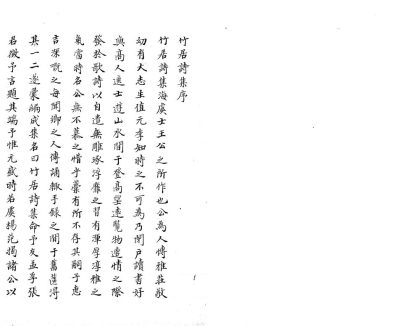 竹居詩集序
竹居詩集海虞士王公之所作也公為人傳雅莊敬
幼有大志生值元季知時之不可為乃閉戶讀書好
與高人逸士遊山水間于登高望遠覽物遣情之際
發於歌詩以自遣無雕琢浮靡之習有渾厚淳雅之
氣當時名公無不慕之惜乎藁有所不存其嗣子惠
吉深慨之每聞鄉之人傳誦輒手錄之間于舊簏得
其一二遂彙編成集名曰竹居詩集命予友孟孚張
君徵予言題其端予惟元盛時若虞楊范揭諸公以